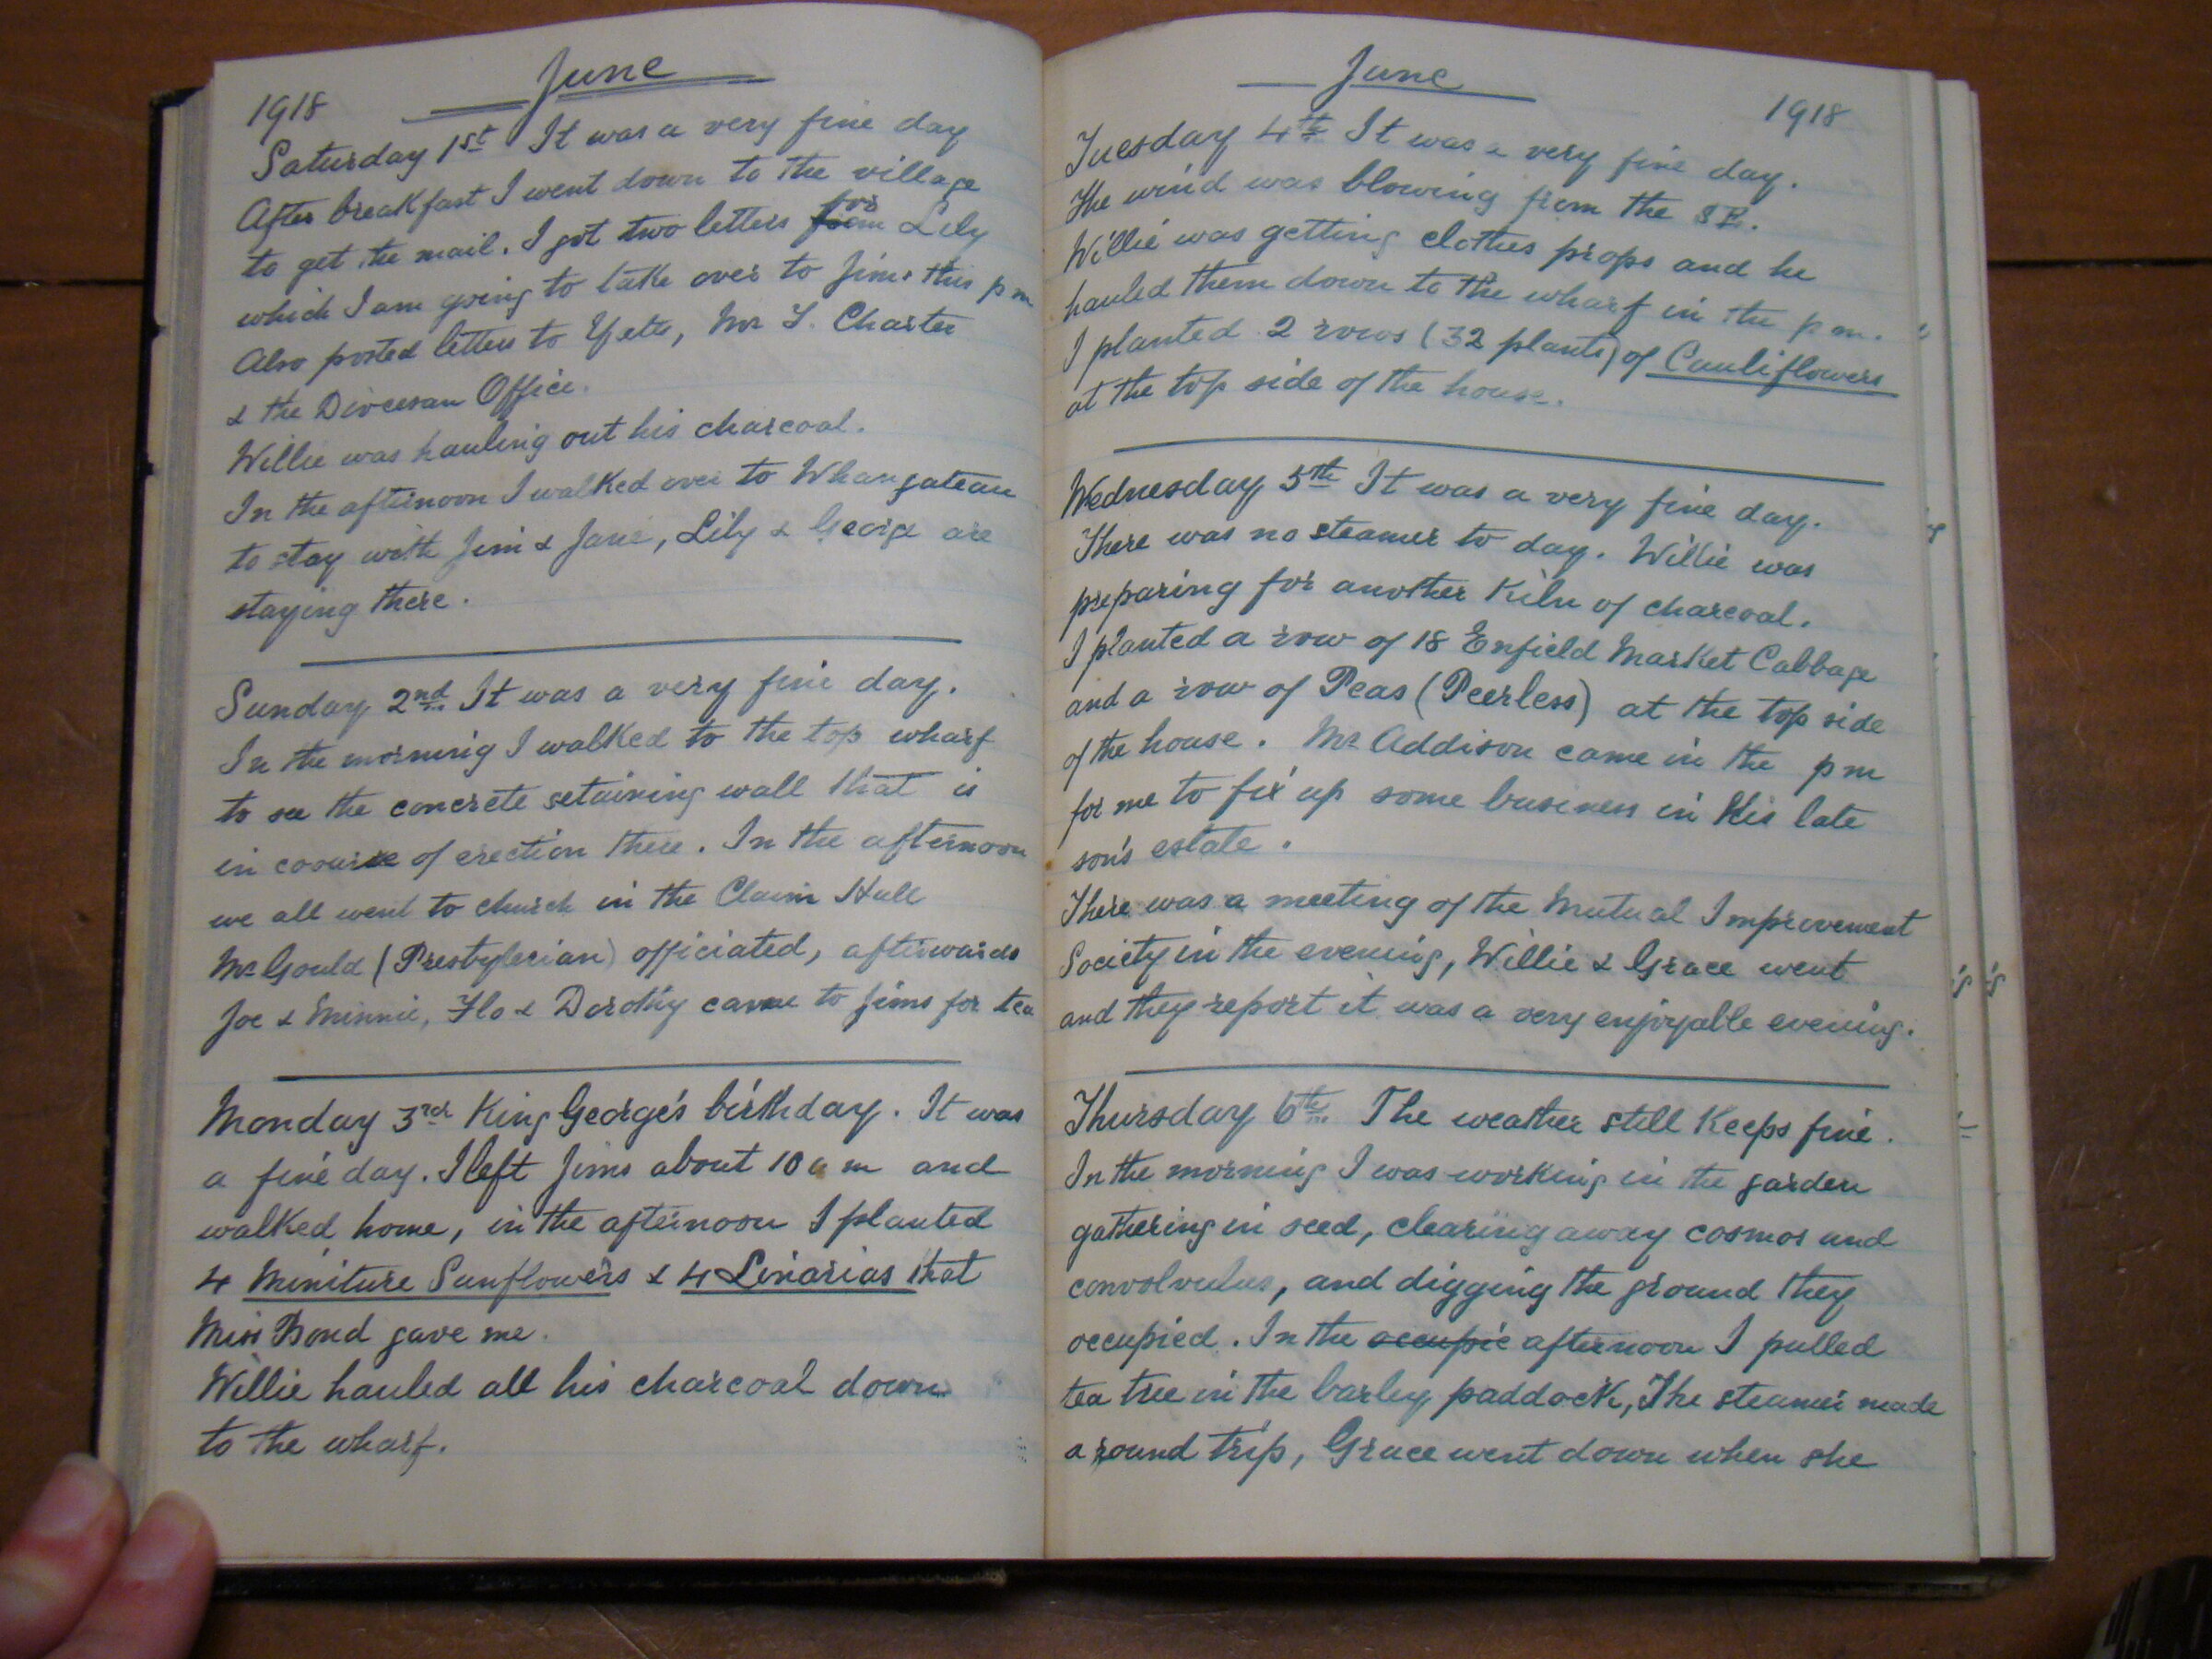 June
1918
Saturday 1st It was a very fine day
After breakfast I went down to the village
to get the mail. I got two letters for Lily
which I am going to take over to Jims this pm
Also posted letters to Yets, Mr T. Charter
& the Diocesan Office.
Willie was hauling out his charcoal.
In the afternoon I walked over to Whangateau
to stay with Jim & Jane, Lily & George are
staying there.
Sunday 2nd It was a very fine day.
In the morning I walked to the top wharf
to see the concrete retaining wall that is
in course of erection there. In the afternoon
we all went to church in the Claim Hall
Mr Gould (Presbyterian) officiated, afterwards
Joe & Minnie, Flo & Dorothy came to Jims for tea
Monday 3rd King George's birthday. It was
a fine day. I left Jims about 10 am and
walked home, in the afternoon I planted
4 Miniture Sunflowers & 4 Linarias that
Miss Bond gave me.
Willie hauled all his charcoal down
to the wharf.
June
1918
Tuesday 4th It was a very fine day.
The wind was blowing from the SE.
Willie was getting clothes props and he
hauled them down to the wharf in the pm.
I planted 2 rows (32 plants) of Cauliflowers
at the top side of the house.
Wednesday 5th It was a very fine day.
There was no steamer to day. Willie was
preparing for another Kiln of charcoal.
I planted a row of 18 Enfield Market Cabbage
and a row of Peas (Peerless) at the top side
of the house. Mr Addison came in the pm
for me to fix up some business in his late
son's estate.
There was a meeting of the Mutual Improvement
Society in the evening, Willie & Grace went
and they report it was a very enjoyable evening.
Thursday 6th The weather still Keeps fine.
In the morning I was working in the garden
gathering in seed, clearing away cosmos and
convolvulus, and digging the ground they
occupied. In the occupie afternoon I pulled
tea tree in the barley paddock, The steamer made
a round trip, Grace went down when she